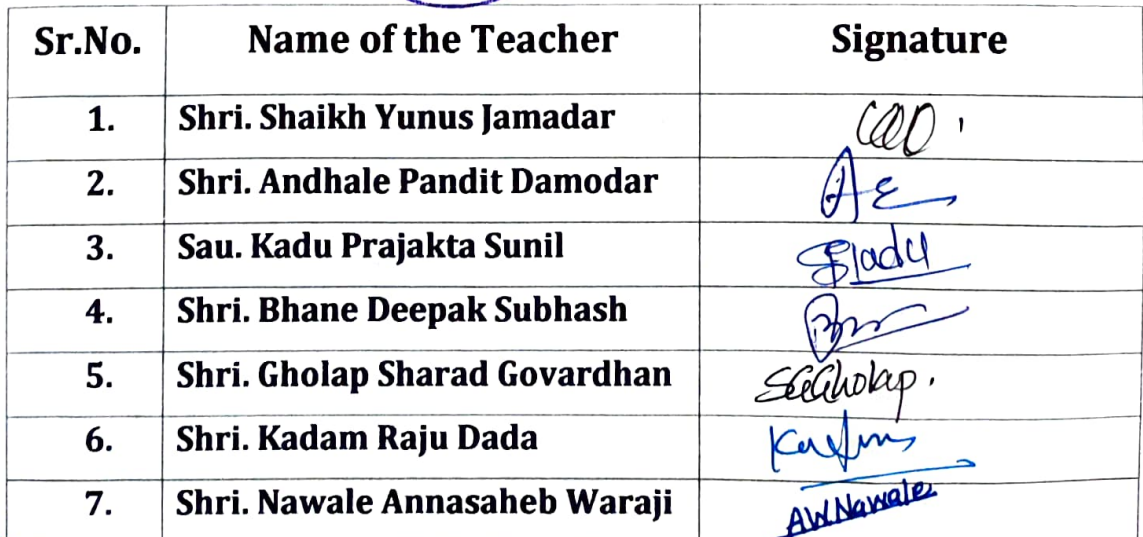 Sr.No. Name of the Teacher Signature
1. Shri. Shaikh Yunus Jamadar
2. Shri. Andhale Pandit Damodar
3. Sau. Kadu Prajakta Sunil
4. Shri. Bhane Deepak Subhash
5. Shri. Gholap Sharad Govardhan SGGholap.
6. Shri. Kadam Raju Dada
7. Shri. Nawale Annasaheb Waraji AWNawale